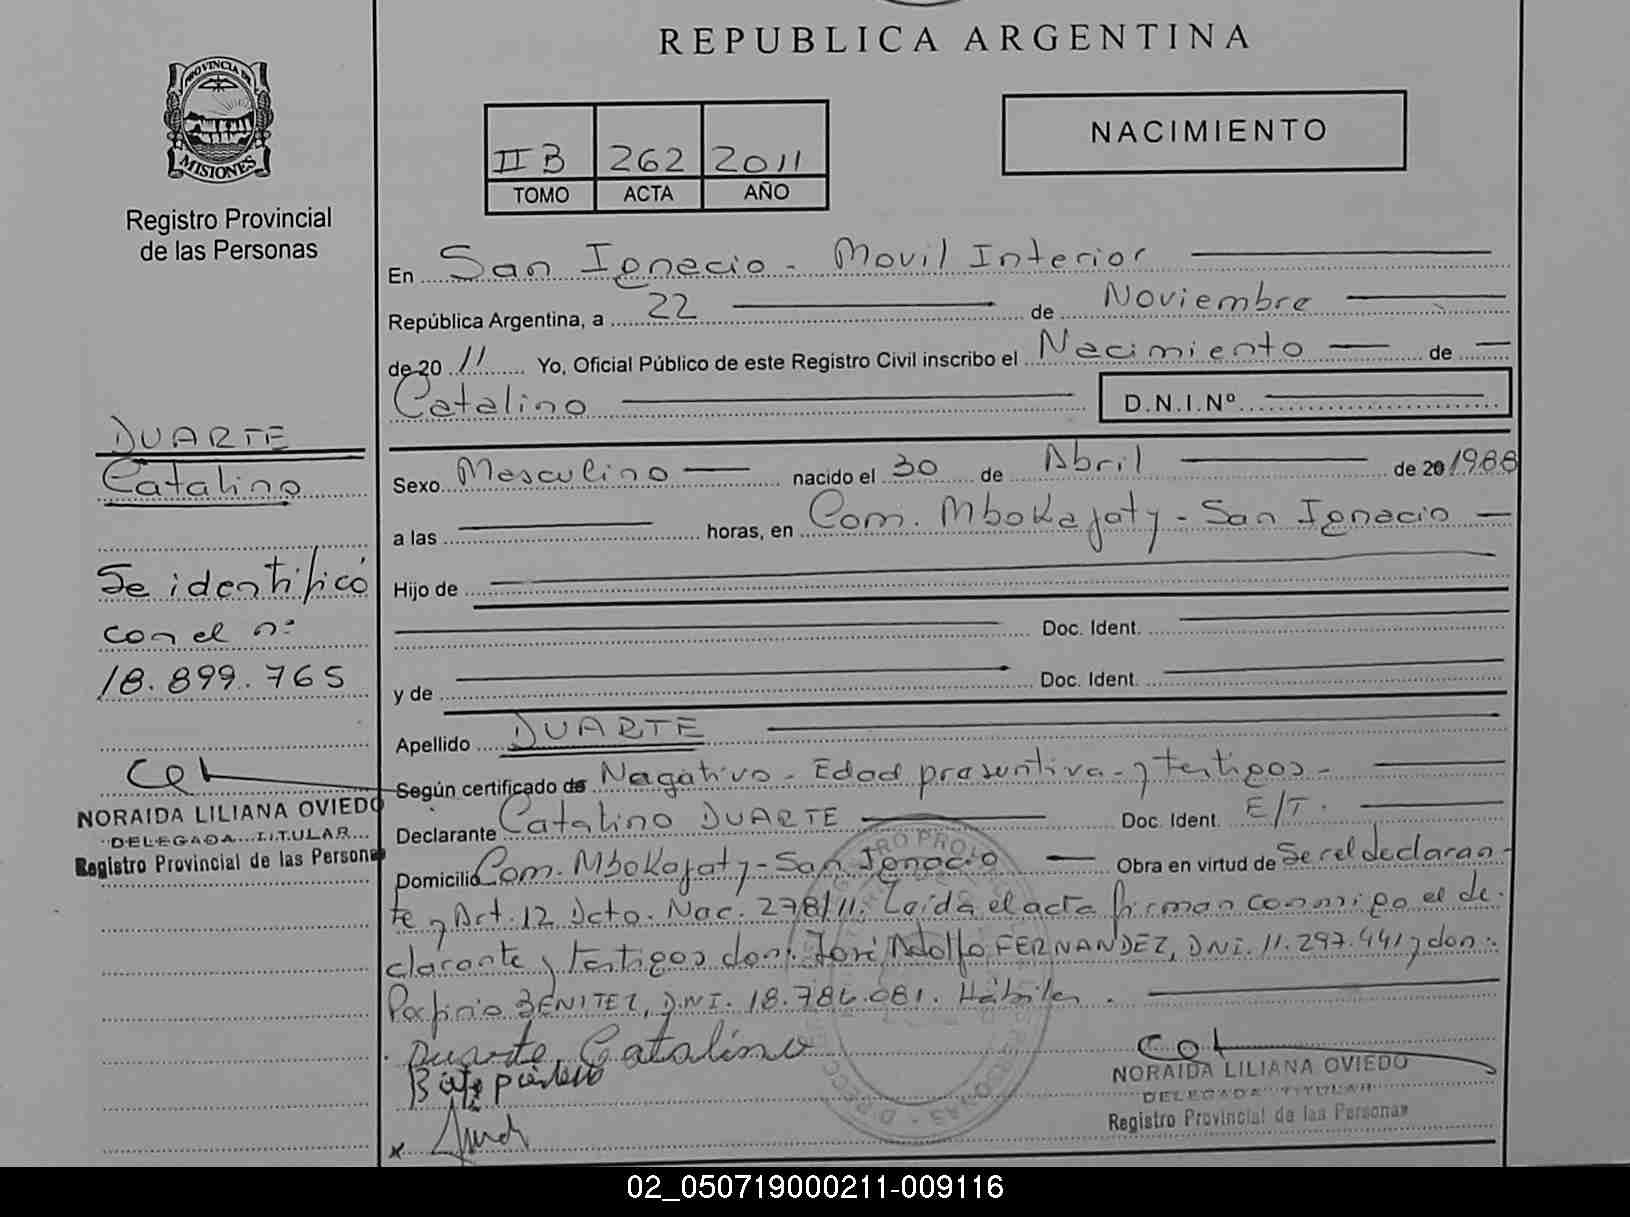 REPUBLICA ARGENTINA
PROVINCIA DE
MISIONES
Registro Provincial
de las Personas
II B 262 2011
TOMO ACTA AÑO
NACIMIENTO
En San Ignacio - Movil Interior
República Argentina, a 22 de Noviembre
de 20 11 Yo, Oficial Público de este Registro Civil inscribo el Nacimiento de
Catalino D.N.I.Nº
DUARTE
Catalino
Se identificó
con el nº
18.899.765
Sexo Masculino nacido el 30 de Abril de 20 1988
a las horas, en Com. Mbokajaty - San Ignacio
Hijo de
Doc. Ident.
y de Doc. Ident.
Apellido DUARTE
Según certificado de Nagativo - Edad presuntiva - y testigos -
Declarante Catalino DUARTE Doc. Ident. E/T.
Domicilio Com. Mbokajaty - San Ignacio Obra en virtud de Ser el declaran-
te y Art. 12 Dcto. Nac. 278/11. Leida el acta firman conmigo el de-
clarante y testigos don: José Adolfo FERNANDEZ, DNI. 11.297.441 y don:
Porfirio BENITEZ, D.N.I. 18.786.081. Hábiles.
Duarte, Catalino
NORAIDA LILIANA OVIEDO
DELEGADA TITULAR
Registro Provincial de las Personas
NORAIDA LILIANA OVIEDO
DELEGADA TITULAR
Registro Provincial de las Personas
02_050719000211-009116